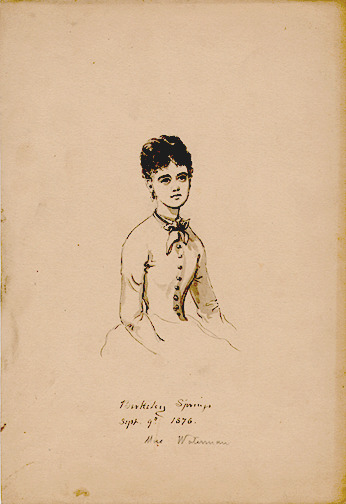 Berkeley Springs
Sept. 9th 1876.
Mae Waterman